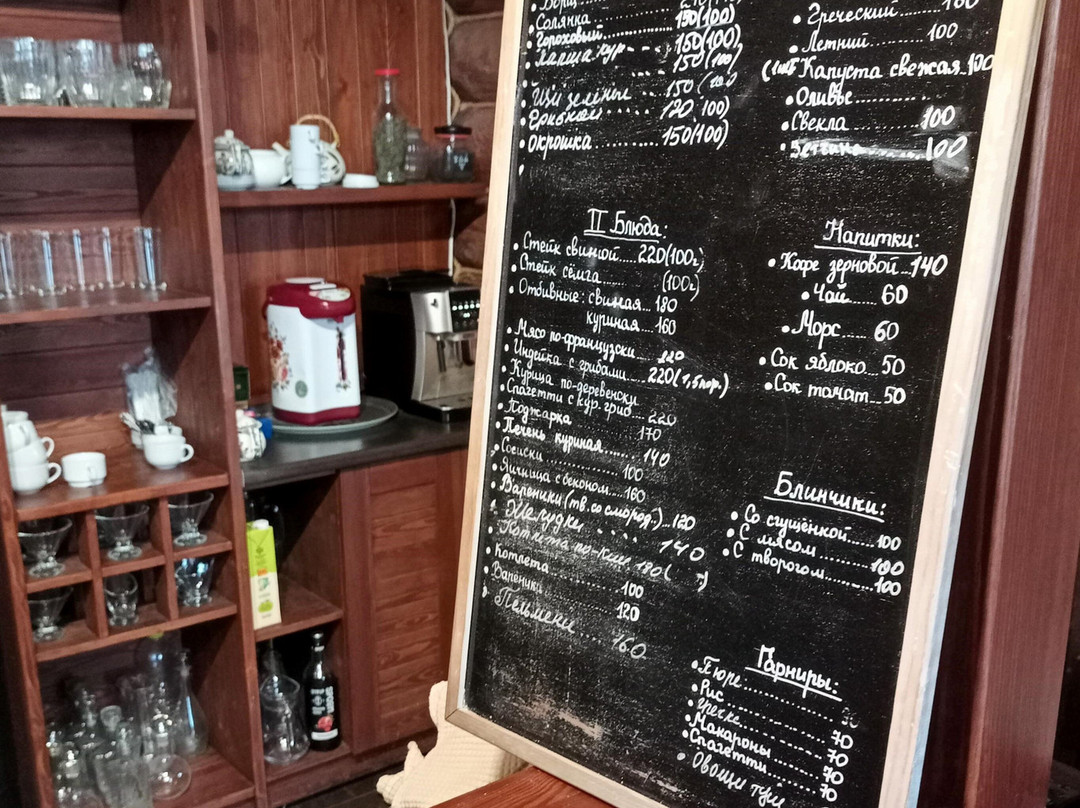 Борщ
Солянка ........ 150(100)
Гороховый ...... 150(100)
Лапша кур ... 150(100)
Щи зелёные ..... 150(100)
120(100)
Окрошка .......... 150(100)
II Блюда:
Стейк свиной ..... 220(100г)
Стейк сёмга ...... (100г)
Отбивные: свиная ... 180
куриная ... 160
Мясо по-французски .... 220
Индейка с грибами .... 220(1,5пор.)
Курица по-деревенски
Спагетти с кур. гриб ... 220
Поджарка 170
Печень куриная ...... 140
Сосиски ......... 100
Яичница с беконом ... 160
Вареники (тв. со смород.) .. 120
Желудки ..... 140
Котлета по-киев 180
Котлета ......... 100
Вареники ......... 120
Пельмени ..... 160
Греческий ........ 160
Летний ........ 100
Капуста свежая .. 100
Оливье ..........
Свекла 100
100
Напитки:
Кофе зерновой ... 140
Чай ...... 60
Морс ..... 60
Сок яблоко ... 50
Сок томат ... 50
Блинчики:
Со сгущёнкой ..... 100
С мясом ......... 100
С творогом ....... 100
Гарниры:
Пюре ..........
Рис ..........
Гречка .......... 70
Макароны ........ 70
Спагетти ........ 70
Овощи туш 70